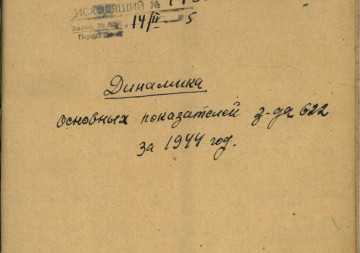 ИСХОДЯЩИЙ №
14/III 5
Динамика
основных показателей з-да 622
за 1944 год.